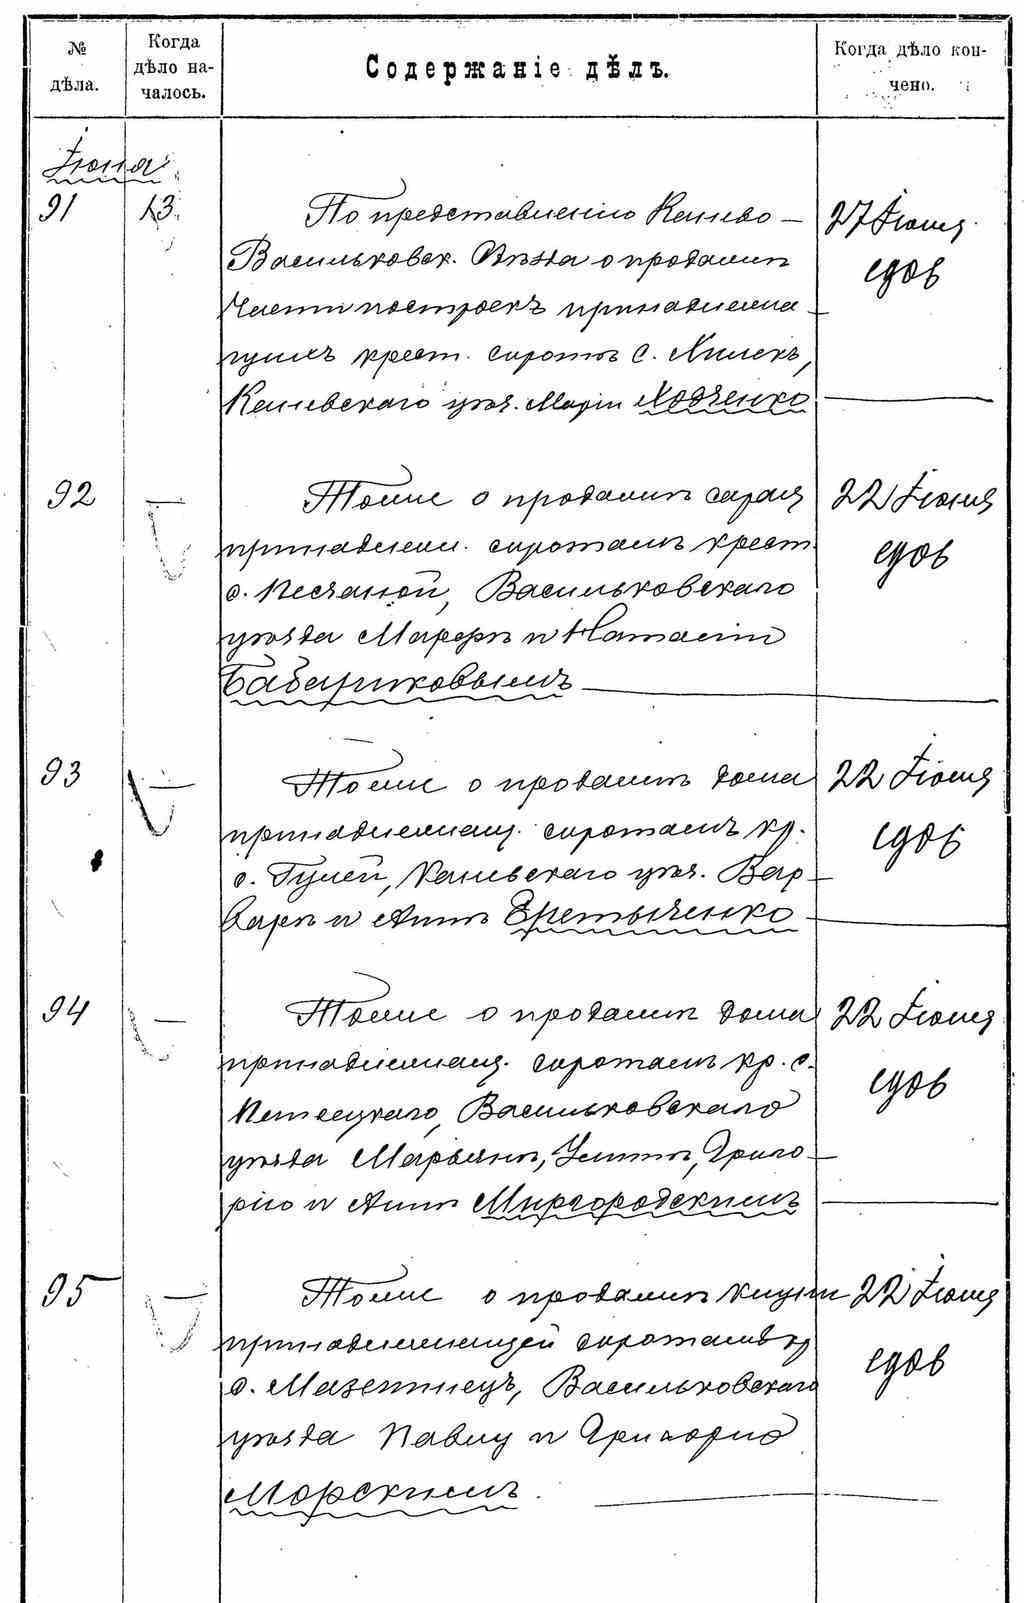 № дѣла.
Когда дѣло началось.
Содержаніе дѣлъ.
Когда дѣло кончено.
Іюня
91 13.
По представленію Канево-
Васильковск. Съѣзда о продажѣ
части построекъ принадлежа-
щихъ крест. сиротѣ с.
Каневскаго уѣз. Маріи Ходченко
27 Іюня
сдов
92 —
Тоже о продажѣ сарая
принадлеж. сиротамъ крест.
с. Песчаной, Васильковскаго
уѣзда Марфѣ и Настасіи
Бабариковымъ
22 Іюня
сдов
93 —
Тоже о продажѣ дома
принадлежащ. сиротамъ кр.
с. Гулей, Каневскаго уѣз. Вар-
варѣ и Аннѣ
22 Іюня
сдов
94 —
Тоже о продажѣ дома
принадлежащ. сиротамъ кр. с.
Васильковскаго
уѣзда Марьянѣ, Григо-
рію и Аннѣ Миргородскимъ
22 Іюня
сдов
95 —
Тоже о продажѣ
принадлежащей сиротамъ кр
с. Мазепинецъ, Васильковскаго
уѣзда Павлу и Григорію
Морскимъ.
22 Іюня
сдов